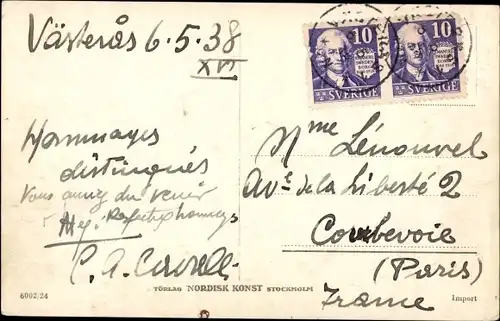 Västerås 6.5.38
XVI
10 10
SVERIGE SVERIGE
Hommages
distingués
Vous avez du venir
Mme Lénouvel
Av.e de la Liberté 2
Courbevoie
(Paris)
France
C. A.
6002/24
FÖRLAG NORDISK KONST STOCKHOLM
Import